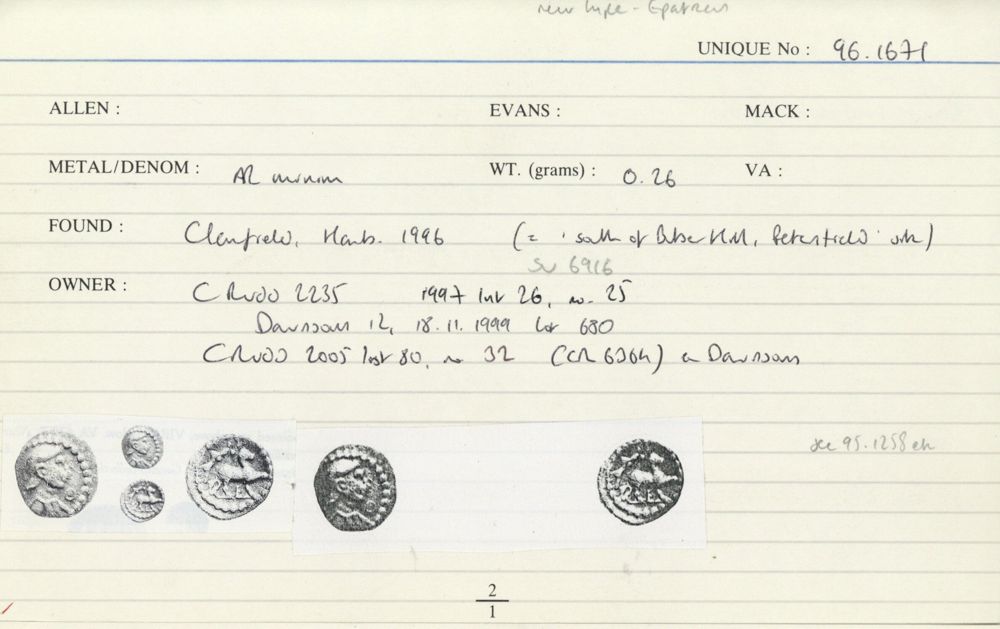 new type - Epaticcus
UNIQUE No : 96.1671
ALLEN :
EVANS :
MACK :
METAL/DENOM : AR minim
WT. (grams) : 0.26
VA :
FOUND : Clanfield, Hants. 1996 (= 'south of Butser Hill, Petersfield'
SU 6916
OWNER : C Rudd 2235 1997 list 26, no. 25
Davissons 12, 18.11.1999 lot 680
C Rudd 2005 list 80, no 32 (CR 6364) ex Davissons
see 95.1258 etc
2
1